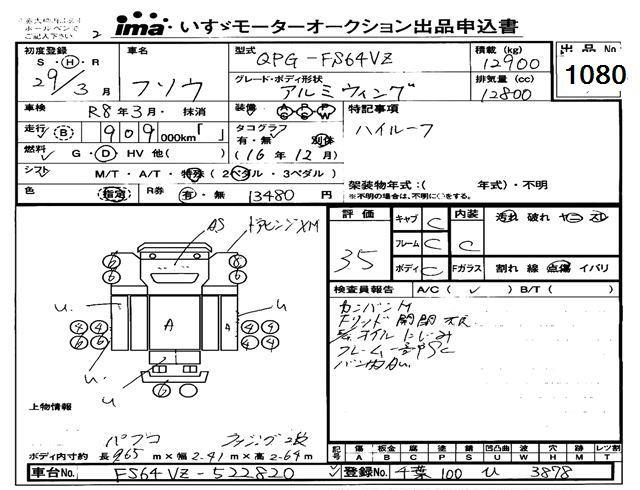 ボールペンで
ご記入下さい
ima いすゞモーターオークション出品申込書
初度登録
車名
型式
QPG-FS64VZ
積載 (kg)
12900
出品 No
S・H・R
29/3月
フソウ
グレード・ボディ形状
アルミウィング
排気量 (cc)
12800
1080
車検 R8年3月・抹消
装備
A P P
S S W
特記事項
走行 B 909 000km「 」
タコグラフ
有・無 別体
ハイルーフ
燃料 G・D・HV 他( )
(16年12月)
シフト M/T・A/T・特殊 (2ペダル・3ペダル)
架装物年式:( 年式)・不明
※不明の場合は、不明に○をする。
色 指定 R券 有・無 13480円
評価
35
キャブ C
内装 C
汚れ 破れ ヤニ スレ
フレーム C
ボディ C
Fガラス
割れ 線 点傷 イバリ
AS
ドアヒンジXM
検査員報告
A/C( ✓ )・B/T( )
カンバンM
ドリッド開閉不良
オイルにじみ
フレーム一部PSC
6 6
6 6
U
U
A
A
4 4
6 6
4 4
6 6
U
U
6
上物情報
パブコ
ボディ内寸約 長 965 m×幅 2.41 m×高 2.64 m
記号 傷 A 板金 B 腐 C 塗 P 錆 S 凹凸曲 U 波 W 穴 H 跡 M レツ割 T
車台No. FS64VZ-522820
登録No. 千葉 100 う 3878